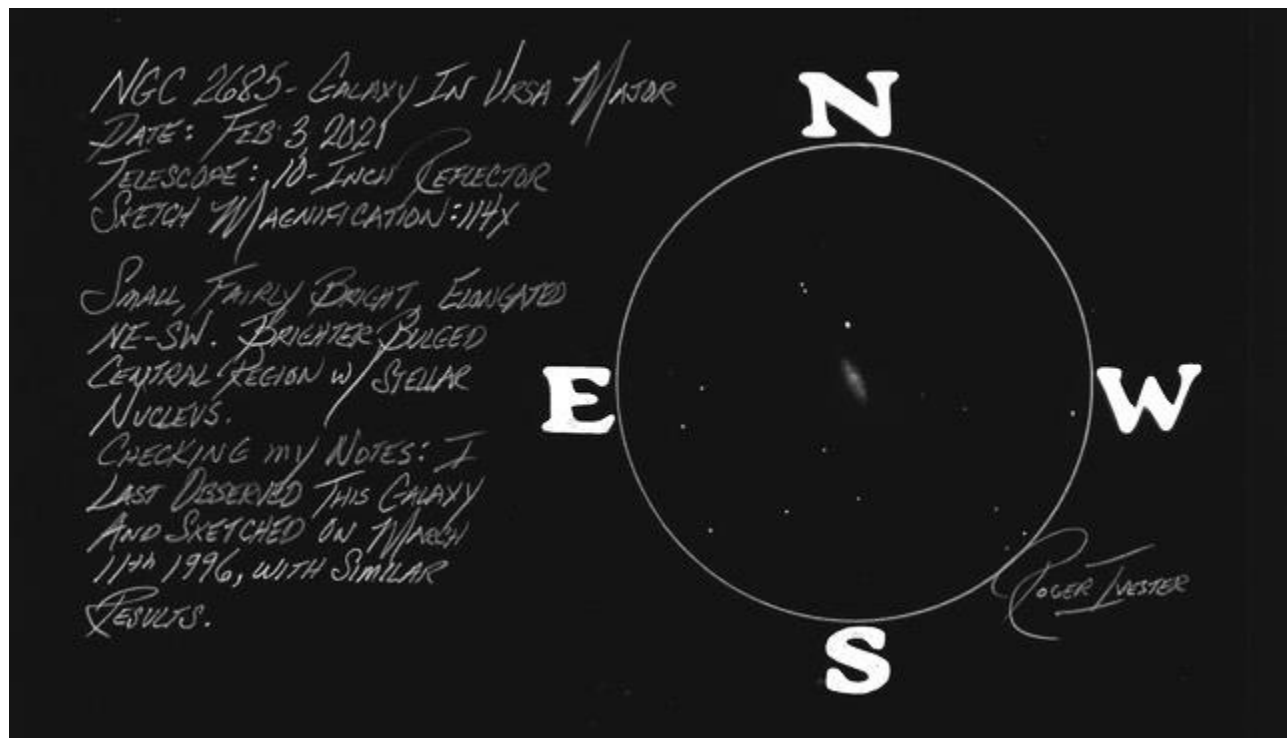 NGC 2685- GALAXY IN URSA MAJOR
DATE: FEB 3, 2021
TELESCOPE: 10-INCH REFLECTOR
SKETCH MAGNIFICATION: 114X
SMALL, FAIRLY BRIGHT, ELONGATED
NE-SW. BRIGHTER BULGED
CENTRAL REGION W/ STELLAR
NUCLEUS.
CHECKING MY NOTES: I
LAST OBSERVED THIS GALAXY
AND SKETCHED ON MARCH
11th 1996, WITH SIMILAR
RESULTS.
N
E
W
S
ROGER IVESTER